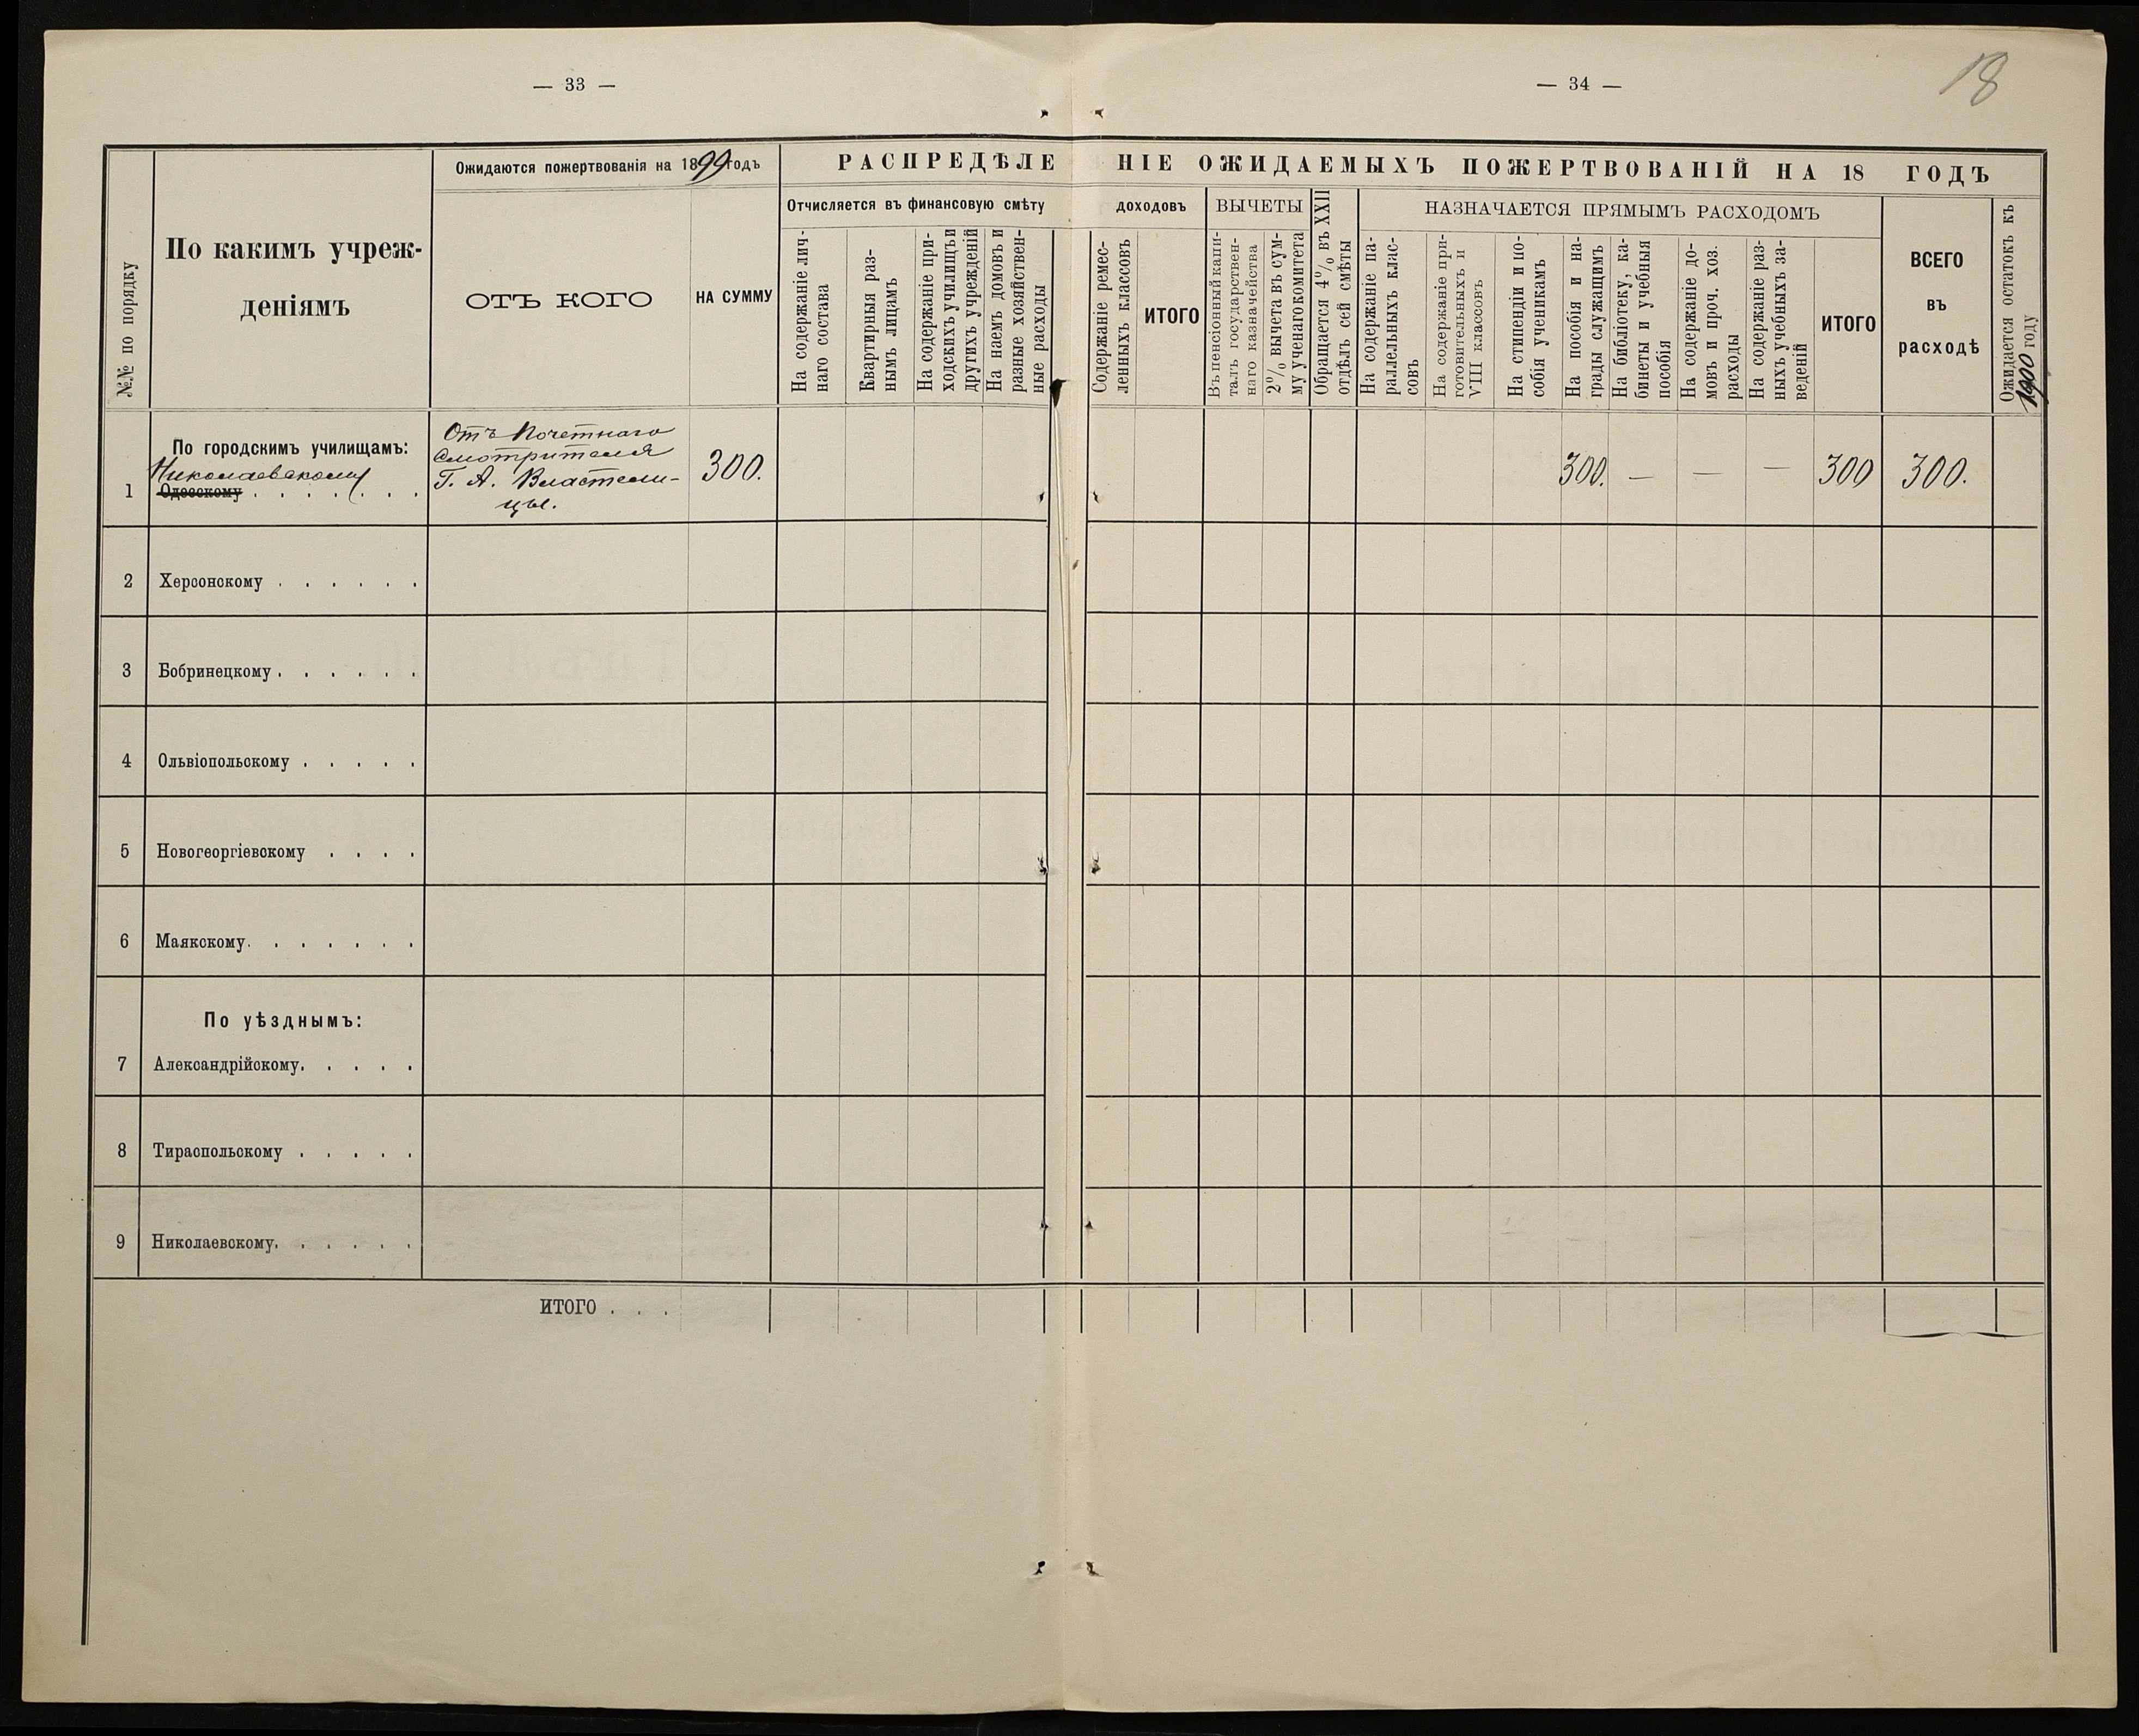 — 33 —
— 34 —
18
№№ по порядку
По какимъ учреж-
деніямъ
Ожидаются пожертвованія на 1899 годъ
ОТЪ КОГО
НА СУММУ
РАСПРЕДѢЛЕ
НІЕ ОЖИДАЕМЫХЪ ПОЖЕРТВОВАНІЙ НА 18 ГОДЪ
Отчисляется въ финансовую смѣту
доходовъ
На содержаніе лич-
наго состава
Квартирныя раз-
нымъ лицамъ
На содержаніе при-
ходскихъ училищъ и
другихъ учрежденій
На наемъ домовъ и
разные хозяйствен-
ные расходы
Содержаніе ремес-
ленныхъ классовъ
ИТОГО
ВЫЧЕТЫ
Въ пенсіонный капи-
талъ государствен-
наго казначейства
2% вычета въ сум-
му ученаго комитета
Обращается 4% въ XXII
отдѣлъ сей смѣты
НАЗНАЧАЕТСЯ ПРЯМЫМЪ РАСХОДОМЪ
На содержаніе па-
раллельныхъ клас-
совъ
На содержаніе при-
готовительныхъ и
VIII классовъ
На стипендіи и по-
собія ученикамъ
На пособія и на-
грады служащимъ
На библіотеку, ка-
бинеты и учебныя
пособія
На содержаніе до-
мовъ и проч. хоз.
расходы
На содержаніе раз-
ныхъ учебныхъ за-
веденій
ИТОГО
ВСЕГО
въ
расходѣ
Ожидается остатокъ къ
1900 году
По городскимъ училищамъ:
Николаевскому
1 Одесскому . . . . . . .
Отъ Почетнаго
Смотрителя
Г. А. Властели-
цы.
300.
300. — — — 300 300.
2 Херсонскому . . . . . .
3 Бобринецкому . . . . . .
4 Ольвіопольскому . . . . .
5 Новогеоргіевскому . . . .
6 Маякскому. . . . . . .
По уѣзднымъ:
7 Александрійскому. . . . .
8 Тираспольскому . . . . .
9 Николаевскому. . . . . .
ИТОГО . . .